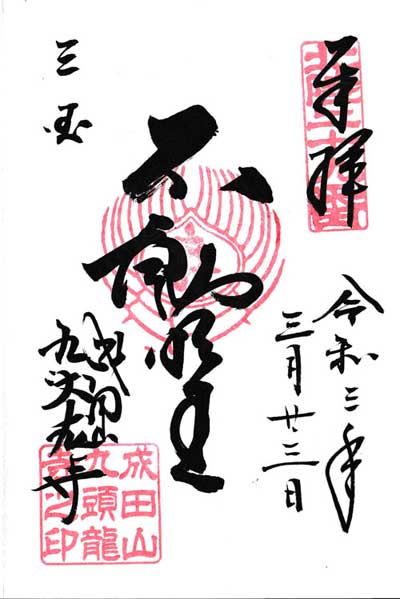 奉拝
令和三年
三月廿三日
不動明王
三国
成田山
九頭龍寺
成田山
九頭龍
寺之印